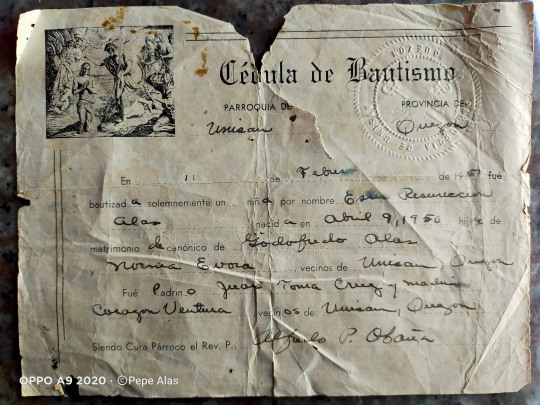 Cédula de Bautismo
PARROQUIA DE PROVINCIA DE
Unisan Quezon
En 11 de Febrero de 1951 fué
bautizada solemnemente un niña por nombre Ester Resurreccion
Alas nacida en Abril 9, 1950 hija de
matrimonio de canónico de Godofredo Alas
y Norma Evora vecinos de Unisan, Quezon
Fué Padrino Juan Toma Cruz y madrina
Corazon Ventura vecinos de Unisan, Quezon
Siendo Cura Párroco el Rev. P. Alfredo P. Obaña
OPPO A9 2020 · ©Pepe Alas